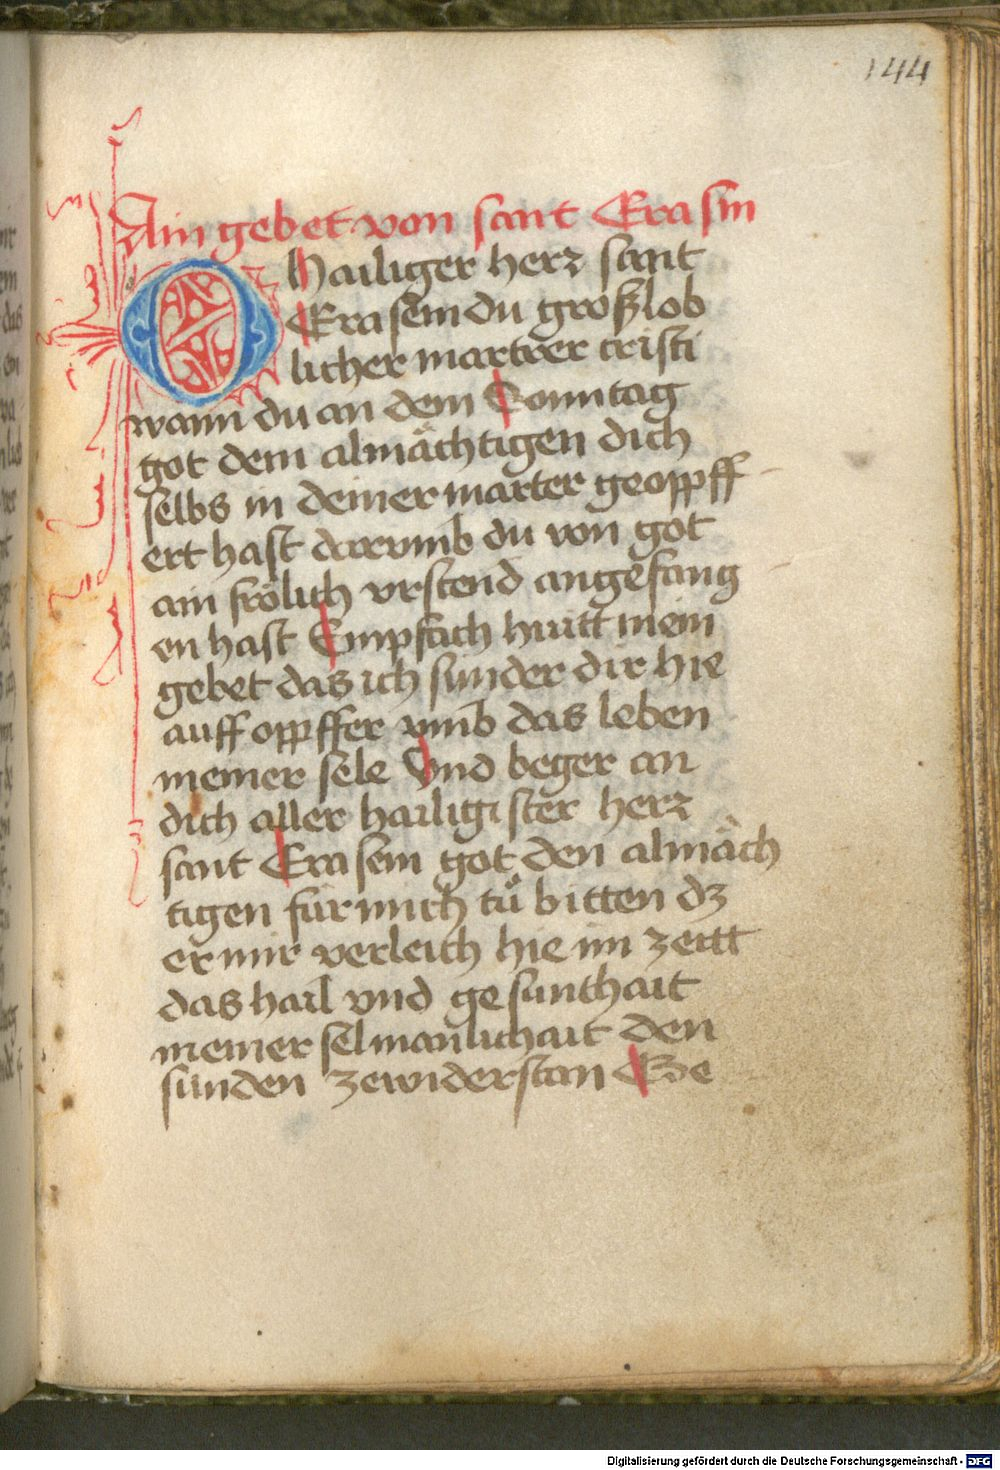 144
Ain gebet von sant Erasm
O Hailiger herr sant
Erasem du groszlob
licher martrer cristi
wann du an dem Sonntag
got dem almächtigen dich
selbs in deiner marter geopff
ert hast darvmb du von got
ain frölich vrstend angefang
en hast Empfach hiutt mein
gebet das ich sunder dir hie
auff opffer vmb das leben
meiner sele Vnd beger an
dich aller hailigister herr
sant Erasem got den almäch
tigen für mich tů bitten dz
er mir verleich hie im zeitt
das hail vnd gesunthait
meiner sel manlichait den
sünden zewiderstan Ge
Digitalisierung gefördert durch die Deutsche Forschungsgemeinschaft - DFG